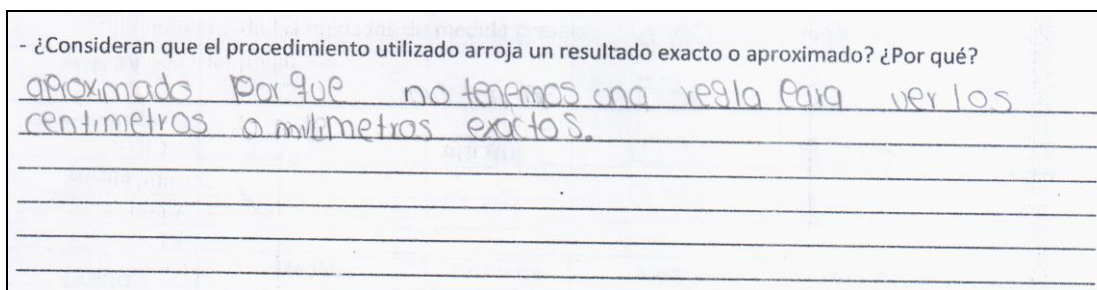 - ¿Consideran que el procedimiento utilizado arroja un resultado exacto o aproximado? ¿Por qué?
aproximado por que no tenemos una regla para ver los
centimetros o milimetros exactos.